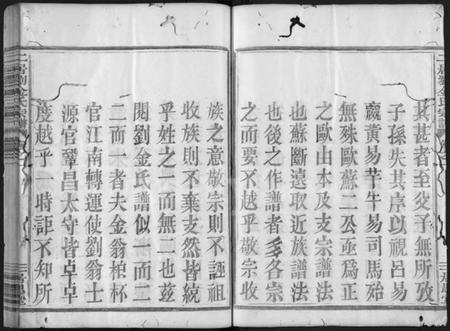 其甚者至爻子無所攷
子孫失其序以視呂易
嬴黄易芊牛易司馬殆
無殊歐蘇二公亟為正
之歐由本及支宗譜法
也蘇斷遠取近族譜法
也後之作譜者多各宗
之而要不越乎敬宗收
族之意敬宗則不誣祖
收族則不棄支然皆統
乎姓之一而無二也兹
閱劉金氏譜似一而二
二而一者夫金翁棺杯
官江南轉運使劉翁士
源官鞏昌太守皆卓卓
度越乎一時詎不知所
二居劉金氏宗譜